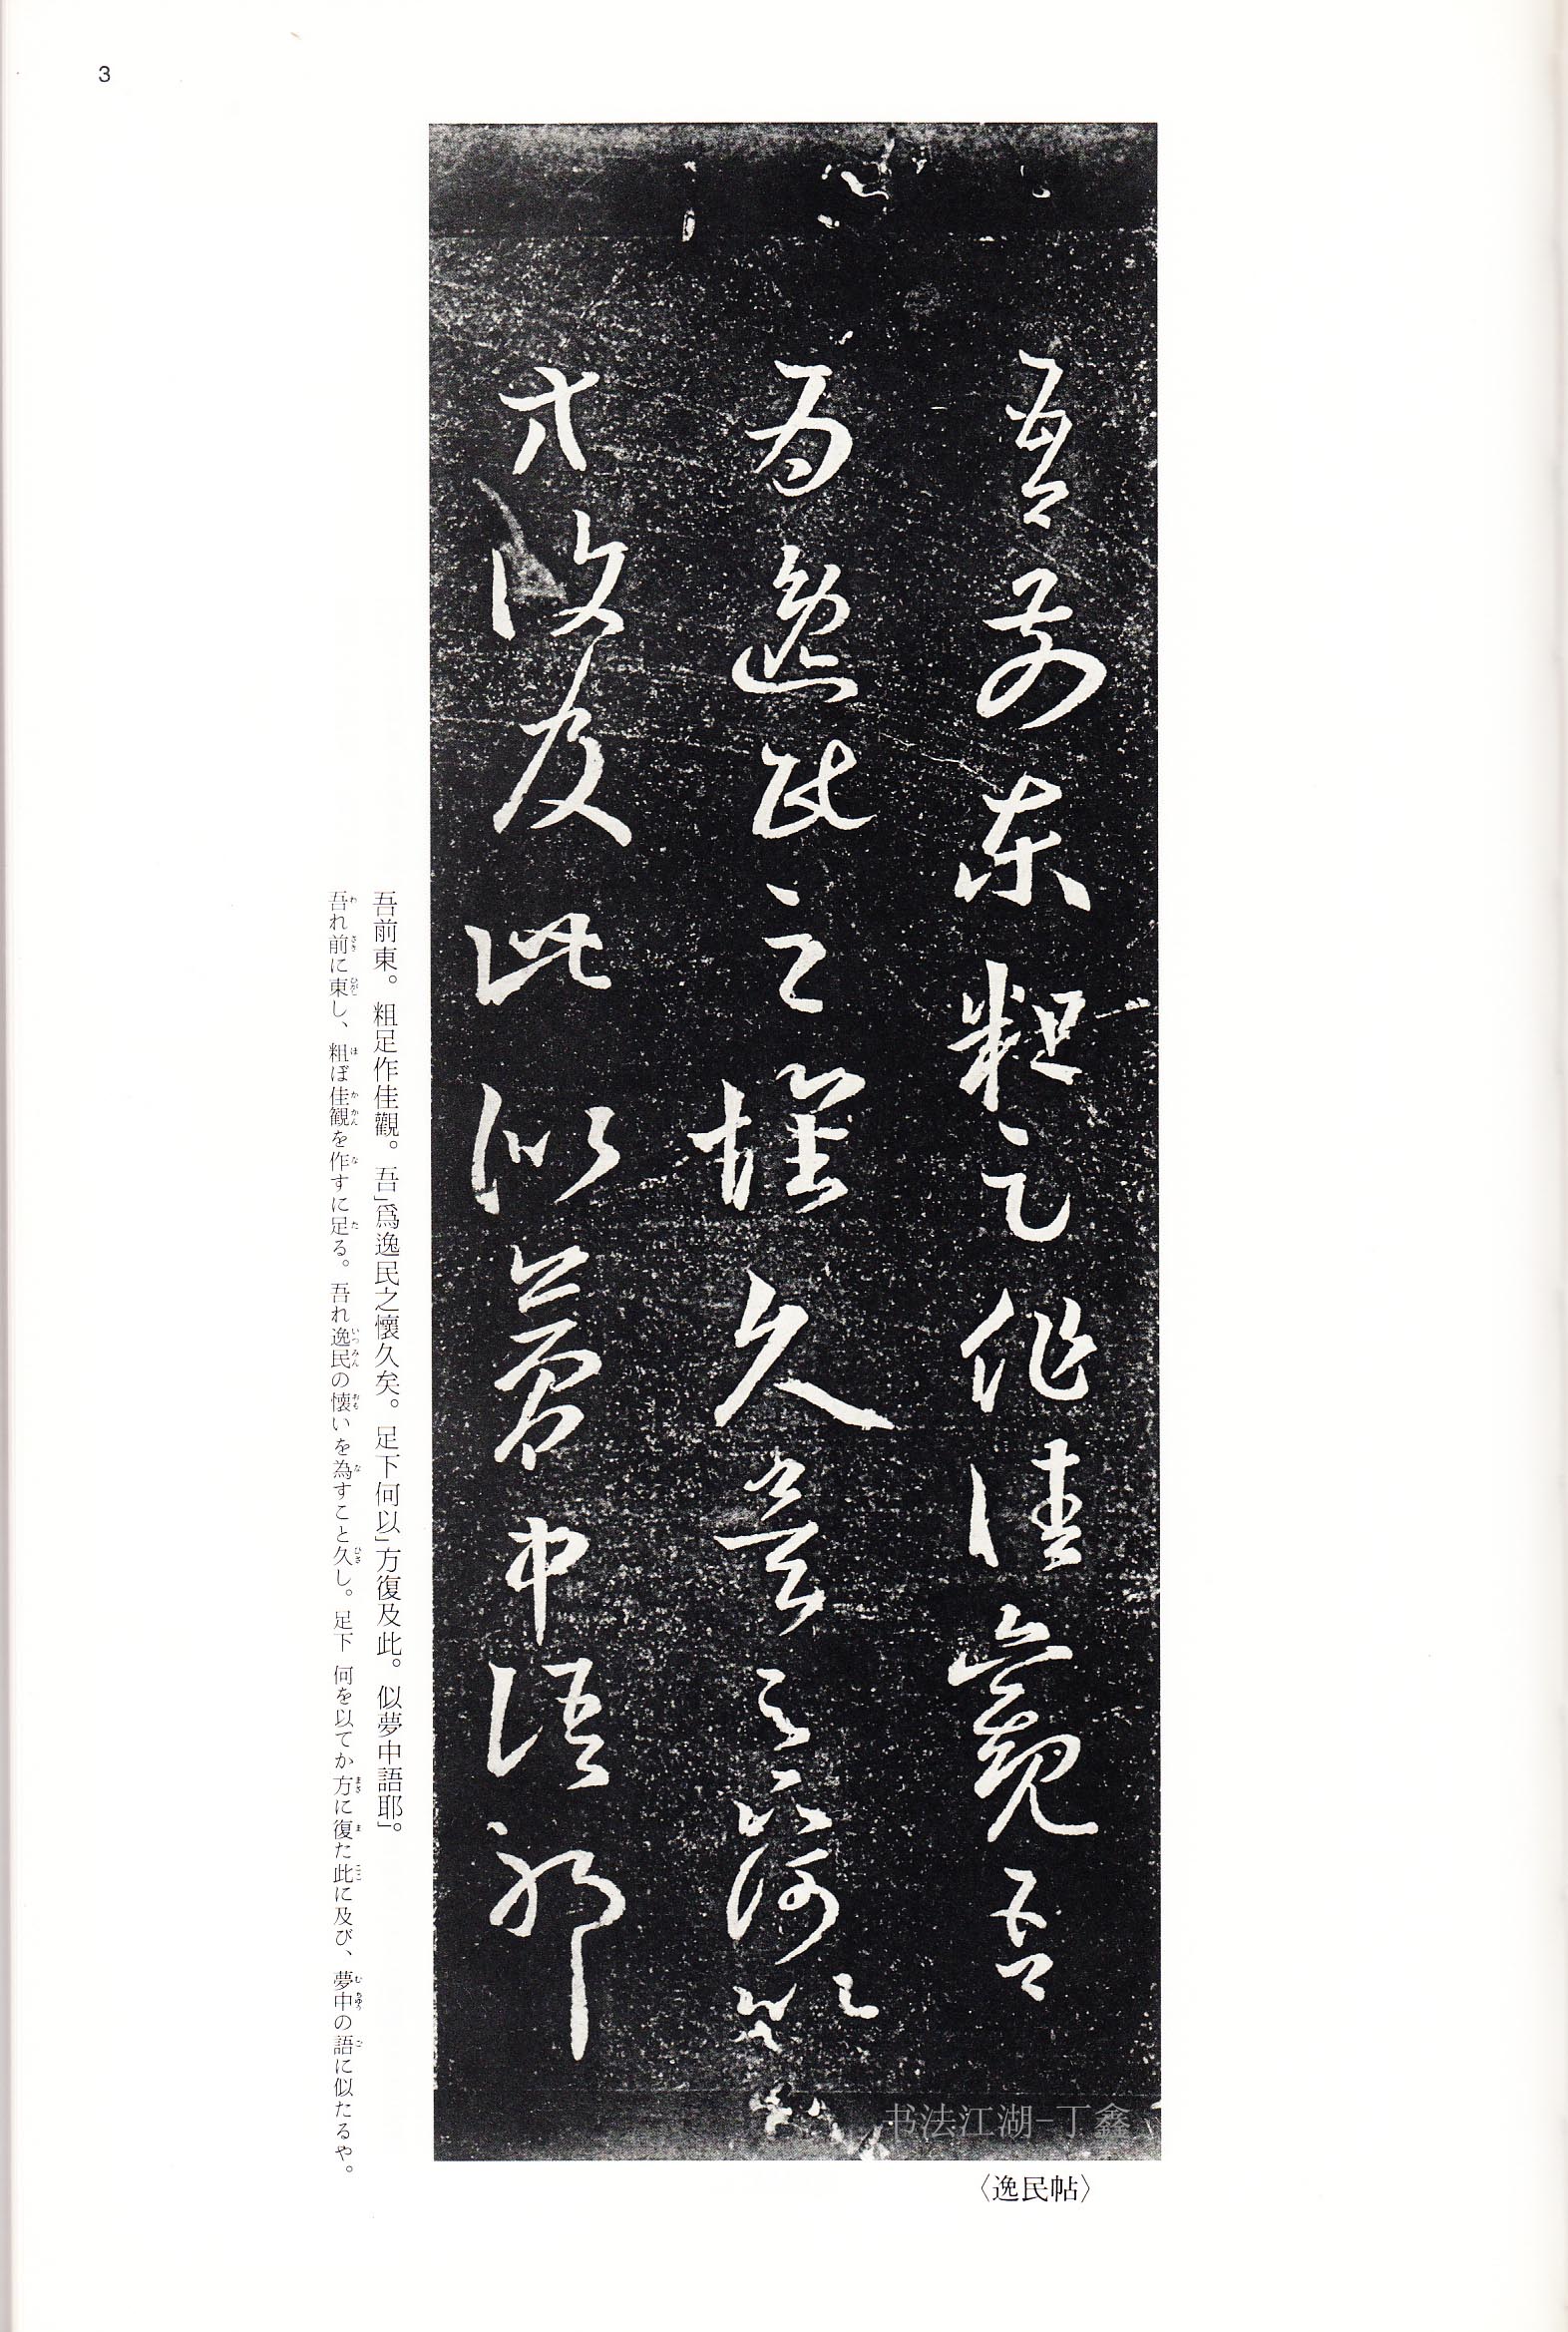 3
吾前東粗足作佳觀吾
為逸民之懷久矣足下何以
方復及此似夢中語耶
书法江湖-丁鑫
〈逸民帖〉
吾前東。粗足作佳觀。吾」爲逸民之懷久矣。足下何以」方復及此。似夢中語耶」。
吾れ前に東し、粗ぼ佳観を作すに足る。吾れ逸民の懐いを為すこと久し。足下 何を以てか方に復た此に及び、夢中の語に似たるや。